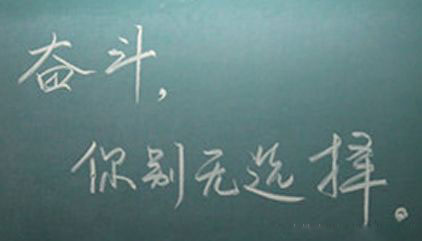 奋斗，
你别无选择。